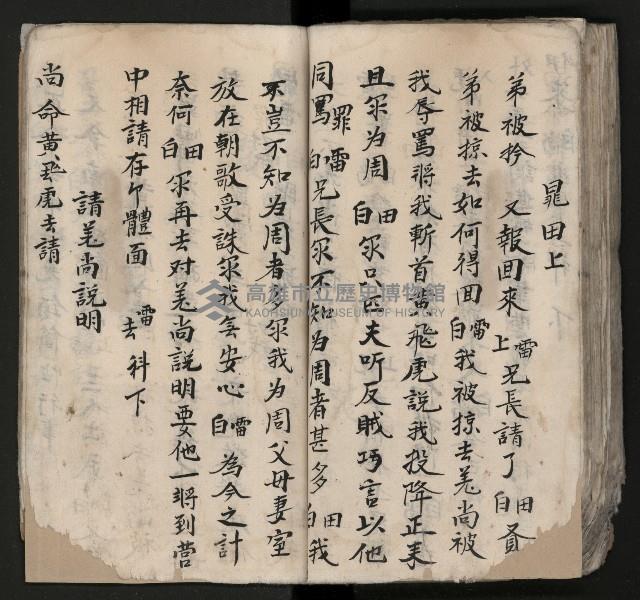 晁田上
弟被拎 又報回來 上雷 兄長請了 白田 賢
弟被掠去如何得回 白雷 我被掠去羗尚被
我辱罵將我斬首黃飛虎説我投降正來
且尔为周 白田 尔口匹夫听反賊巧言以他
同罵罪 白雷 兄長尔不知为周者甚多 白田 我
豈不知为周者 尔我为周父母妻室
放在朝歌受誅尔我怎安心 白雷 為今之計
奈何 白田 尔再去对羗尚説明要他一將到营
中相請存卩體面 雷去 科下
請羗尚説明
尚命黄飛虎去請
高雄市立歷史博物館
KAOHSIUNG MUSEUM OF HISTORY